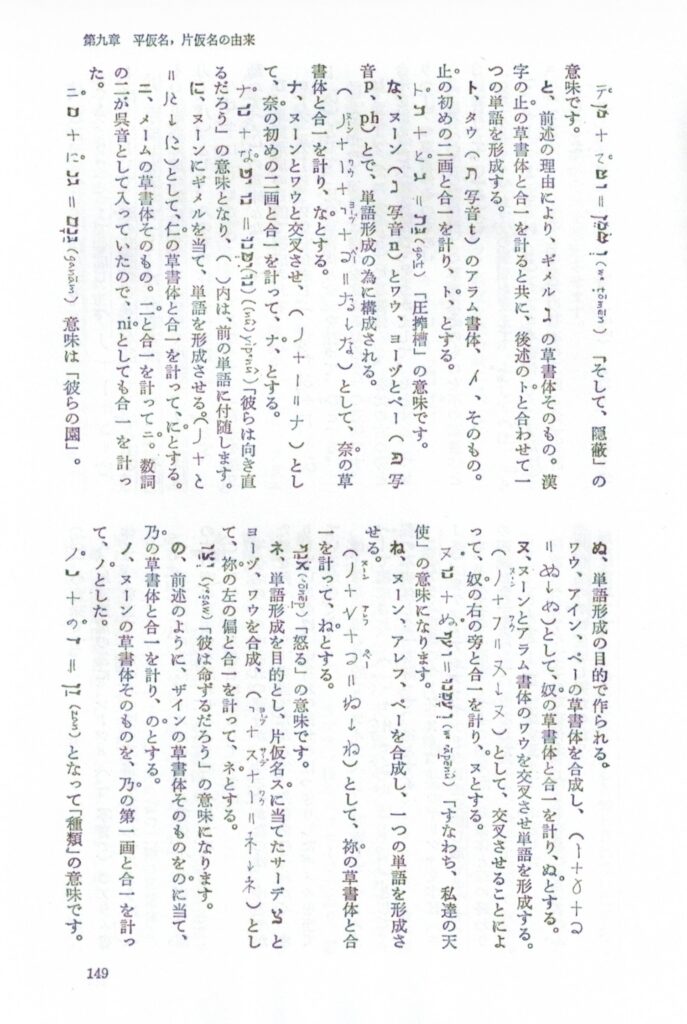 第九章　平仮名，片仮名の由来
意味です。
と、前述の理由により、ギメル ג の草書体そのもの。漢
字の止の草書体と合一を計ると共に、後述のトと合わせて一
つの単語を形成する。
ト、タウ（ ת 写音t）のアラム書体、そのもの。
止の初めの二画と合一を計り、ト、とする。
「圧搾槽」の意味です。
な、ヌーン（ נ 写音n）とワウ、ヨーヅとペー（ פ 写
音p, ph）とで、単語形成の為に構成される。
として、奈の草
書体と合一を計り、なとする。
ナ、ヌーンとワウと交叉させ、（ 丿＋一＝ナ ）とし
て、奈の初めの二画と合一を計って、ナ、とする。
「彼らは向き直
るだろう」の意味となり、（ ）内は、前の単語に付随します。
に、ヌーンにギメルを当て、単語を形成させる。
として、仁の草書体と合一を計って、にとする。
ニ、メームの草書体そのもの。二と合一を計ってニ。数詞
の二が呉音として入っていたので、niとしても合一を計っ
た。
意味は「彼らの園」。
ぬ、単語形成の目的で作られる。
ワウ、アイン、ペーの草書体を合成し、
として、奴の草書体と合一を計り、ぬとする。
ヌ、ヌーンとアラム書体のワウを交叉させ単語を形成する。
として、交叉させることによ
って、奴の右の旁と合一を計り、ヌとする。
「すなわち、私達の天
使」の意味になります。
ね、ヌーン、アレフ、ペーを合成し、一つの単語を形成さ
せる。
として、祢の草書体と合
一を計って、ねとする。
「怒る」の意味です。
ネ、単語形成を目的とし、片仮名スに当てたサーデ צ と
ヨーヅ、ワウを合成、
とし
て、祢の左の偏と合一を計って、ネとする。
「彼は命ずるだろう」の意味になります。
の、前述のように、ザインの草書体そのものをのに当て、
乃の草書体と合一を計り、のとする。
ノ、ヌーンの草書体そのものを、乃の第一画と合一を計っ
て、ノとした。
となって「種類」の意味です。
149